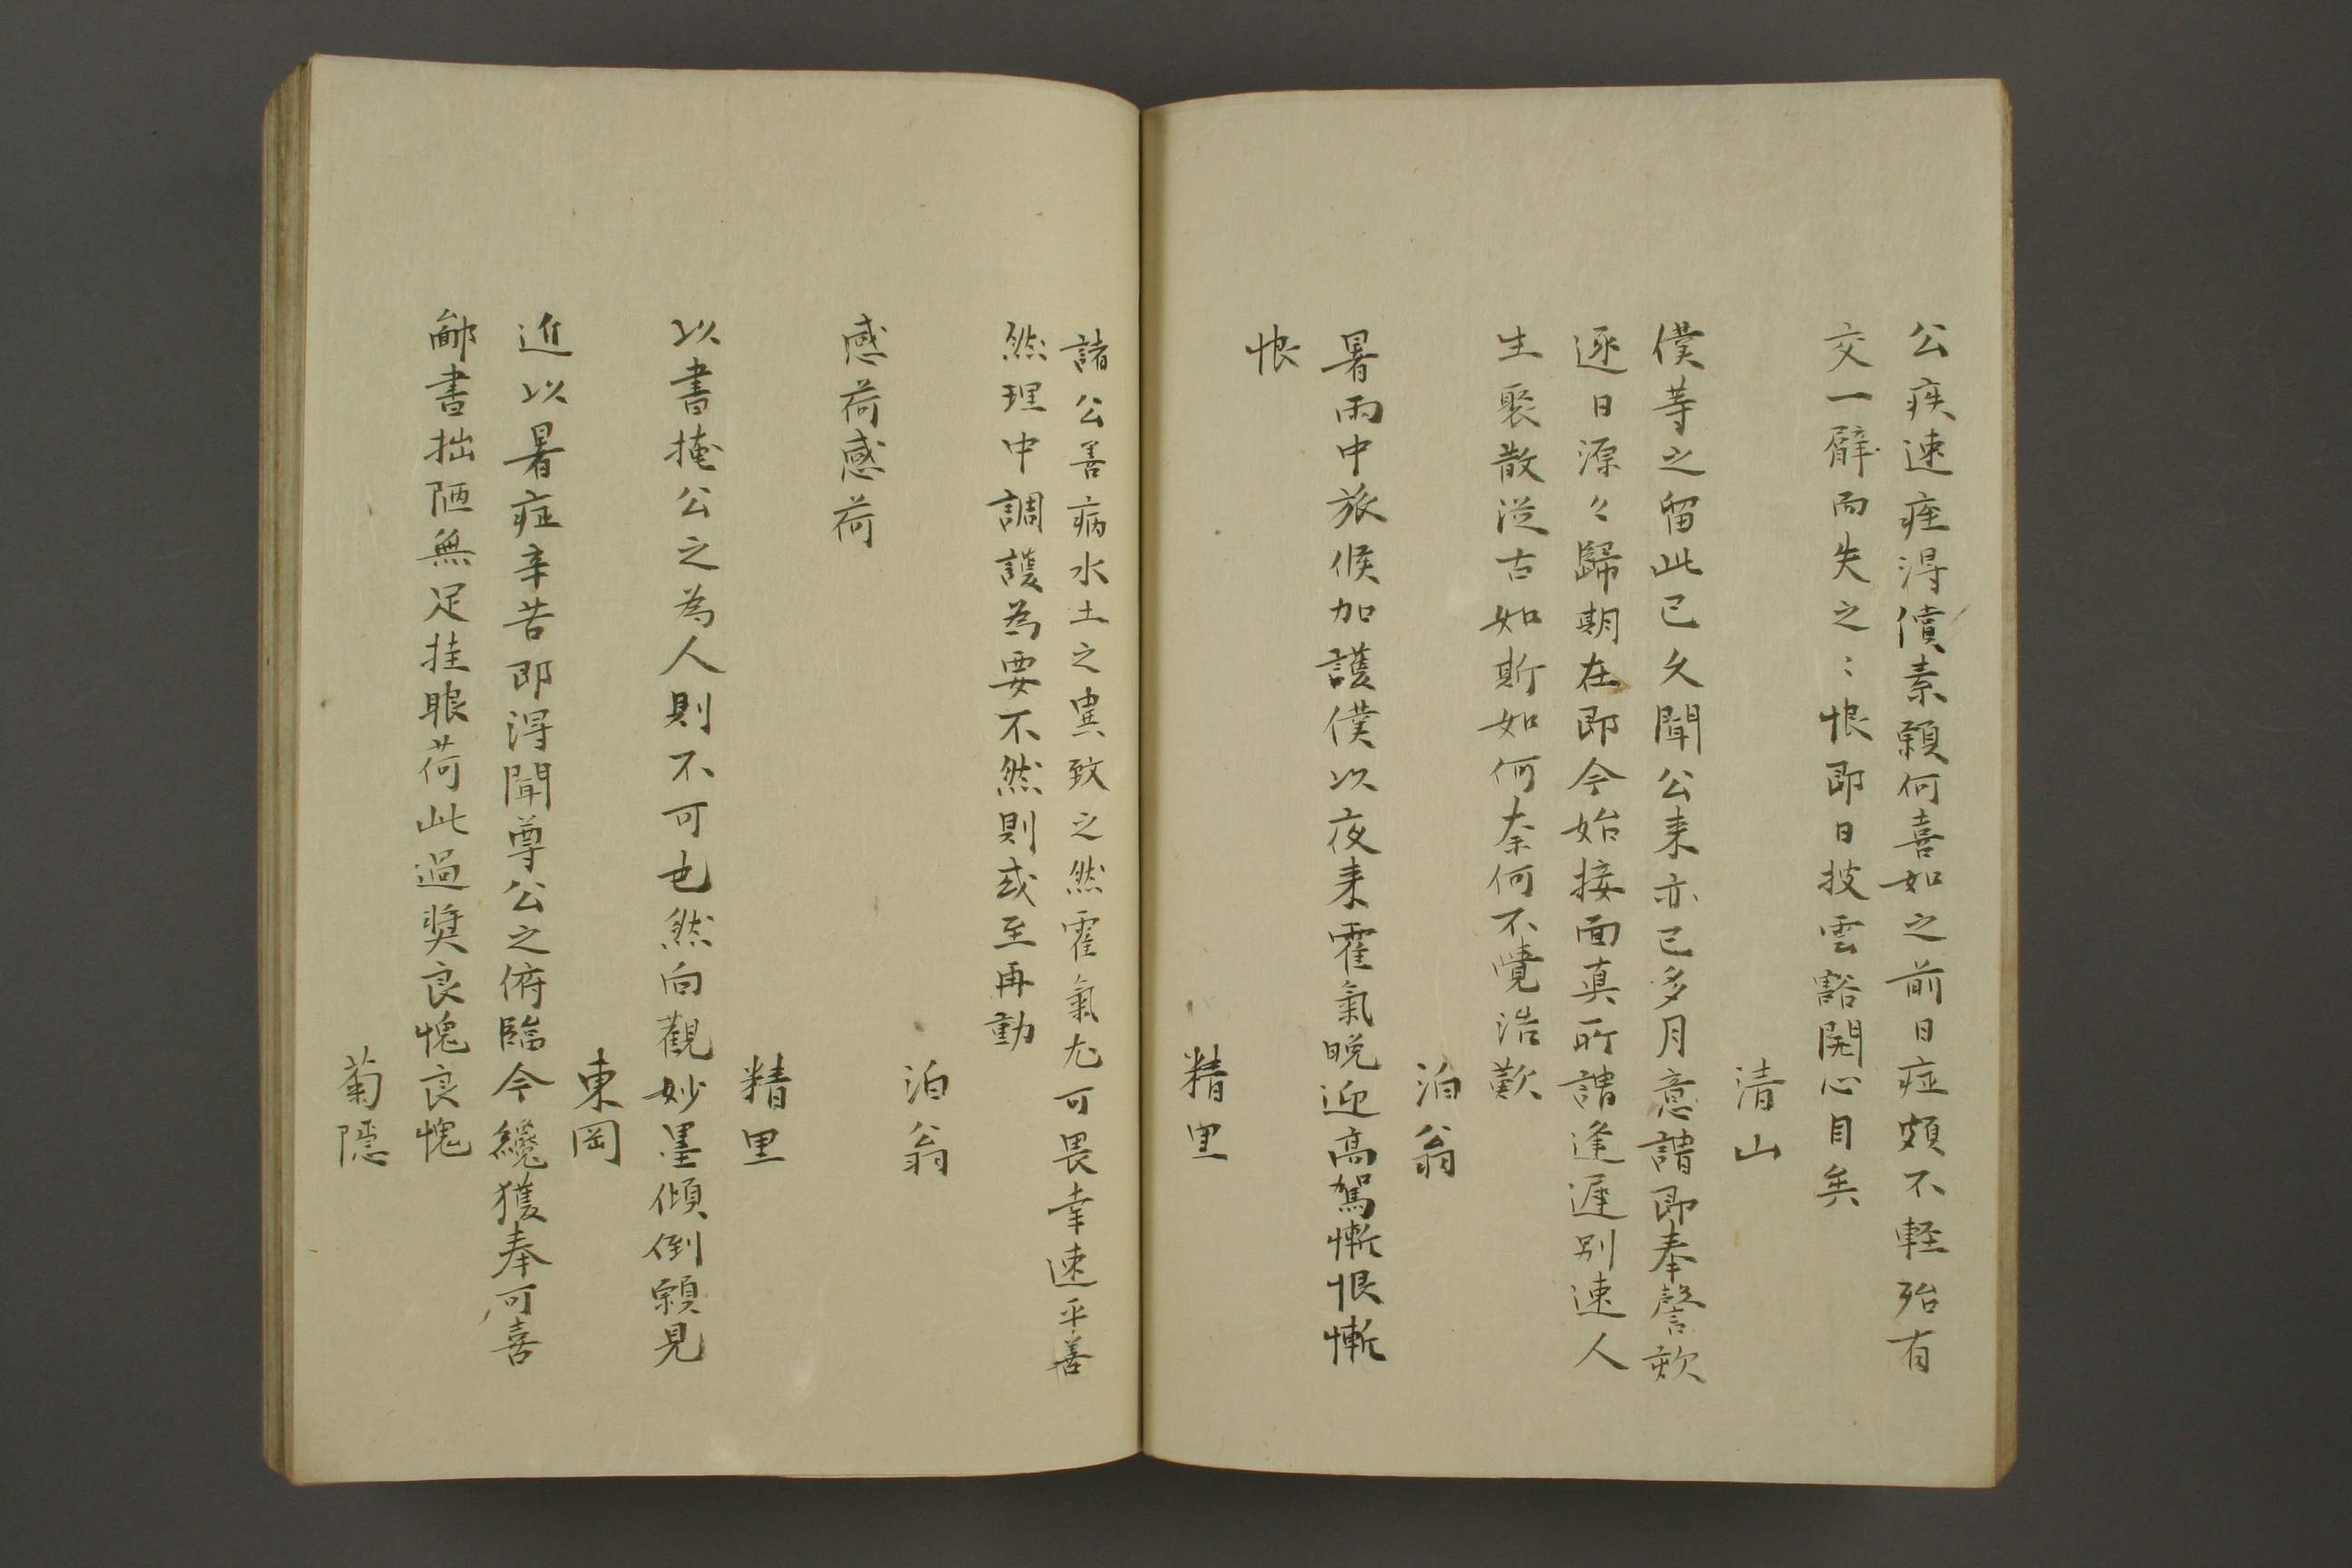 公疾速痊得償素願何喜如之前日症頗不軽殆有
交一臂而失之〻恨即日披雲豁開心目矣
清山
僕等之留此已久聞公来亦已多月意謂即奉謦欬
逐日源々歸期在即今始接面真所謂逢遲別速人
生聚散従古如斯如何奈何不覺浩歎
泊翁
暑雨中旅候加護僕以夜来霍氣晩迎高駕慚恨慚
恨
精里
諸公善病水土之異致之然霍氣尤可畏幸速平善
然理中調護為要不然則或至再動
泊翁
感荷感荷
精里
以書掩公之為人則不可也然向觀妙墨傾倒願見
東岡
近以暑症辛苦即得聞尊公之俯臨今纔獲奉可喜
鄙書拙陋無足挂眼荷此過奨良愧良愧
菊隠